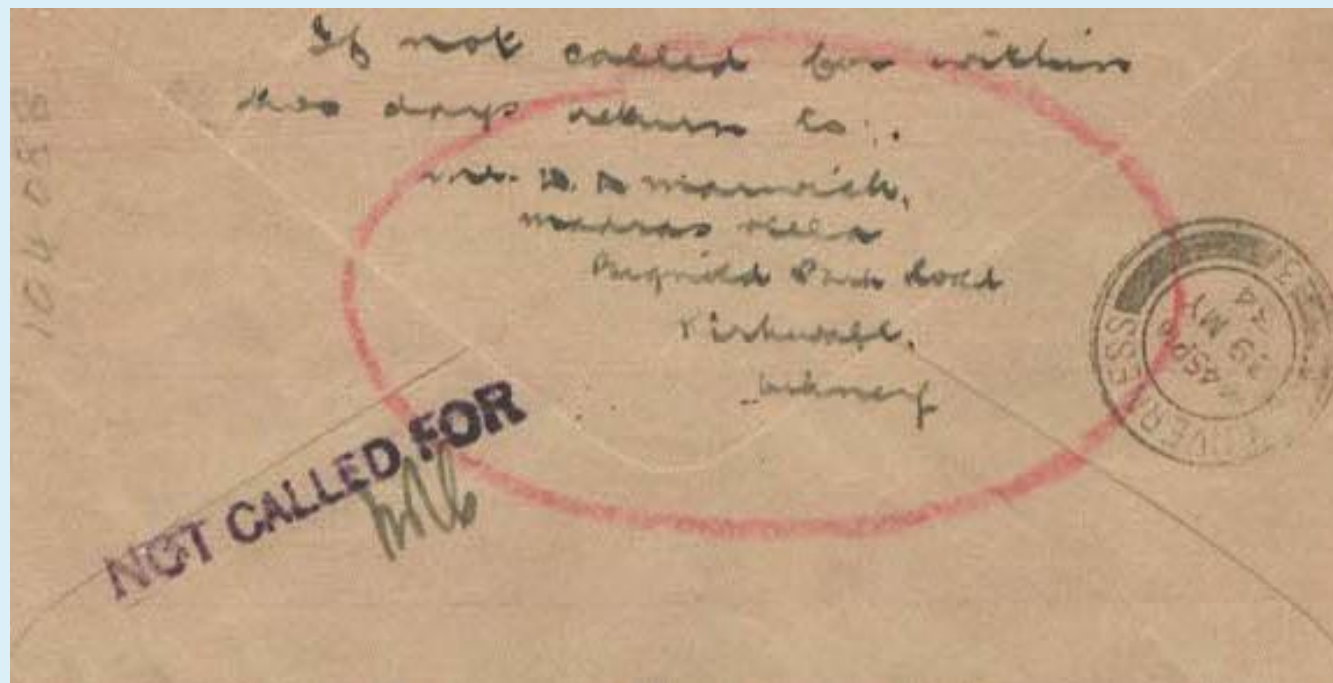 If not called for within
two days return to:
Marwick,
Madras Villa
Park Road
Kirkwall,
Orkney
NOT CALLED FOR
INVERNESS
45P
29 MY
44